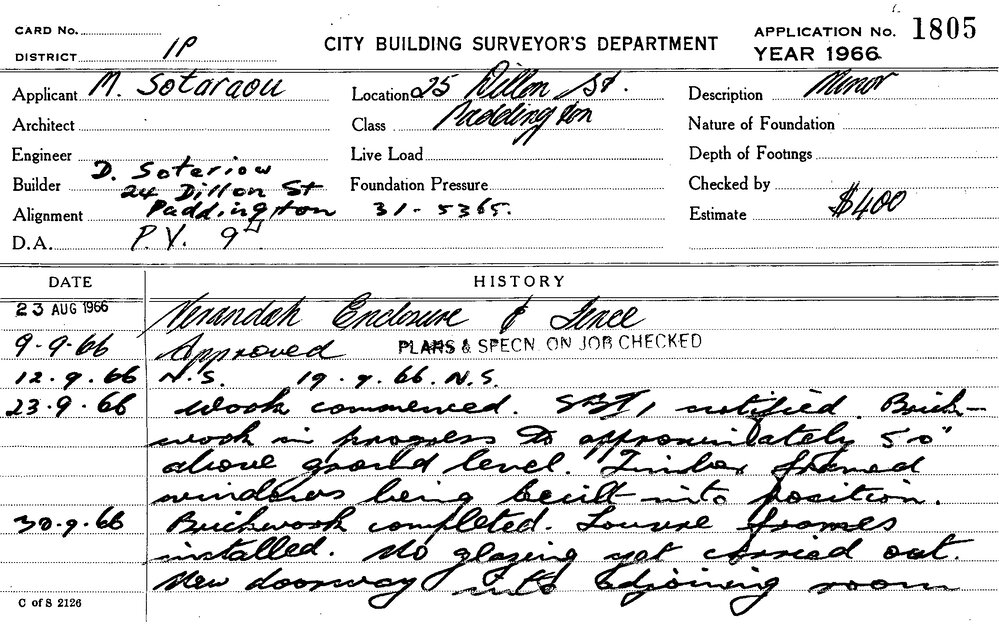 CARD No.
DISTRICT 1P
CITY BUILDING SURVEYOR'S DEPARTMENT
APPLICATION No. 1805
YEAR 1966
Applicant M. Sotaraou
Location 25 Dillon St.
Description Minor
Architect
Class Paddington
Nature of Foundation
Engineer
Live Load
Depth of Footings
Builder D. Soteriou
24 Dillon St
Foundation Pressure
Checked by
Alignment Paddington 31-5365.
Estimate $400
D.A. P.V. 9
DATE HISTORY
23 AUG 1966 Verandah Enclosure & Fence
9-9-66 Approved PLANS & SPECN. ON JOB CHECKED
12.9.66 N.S. 19.9.66. N.S.
23.9.66 Work commenced. notified. Brick-
work in progress to approximately 5'0"
above ground level. Timber framed
windows being built into position.
30.9.66 Brickwork completed. Louvre frames
installed. No glazing yet carried out.
New doorway into adjoining room
C of S 2126